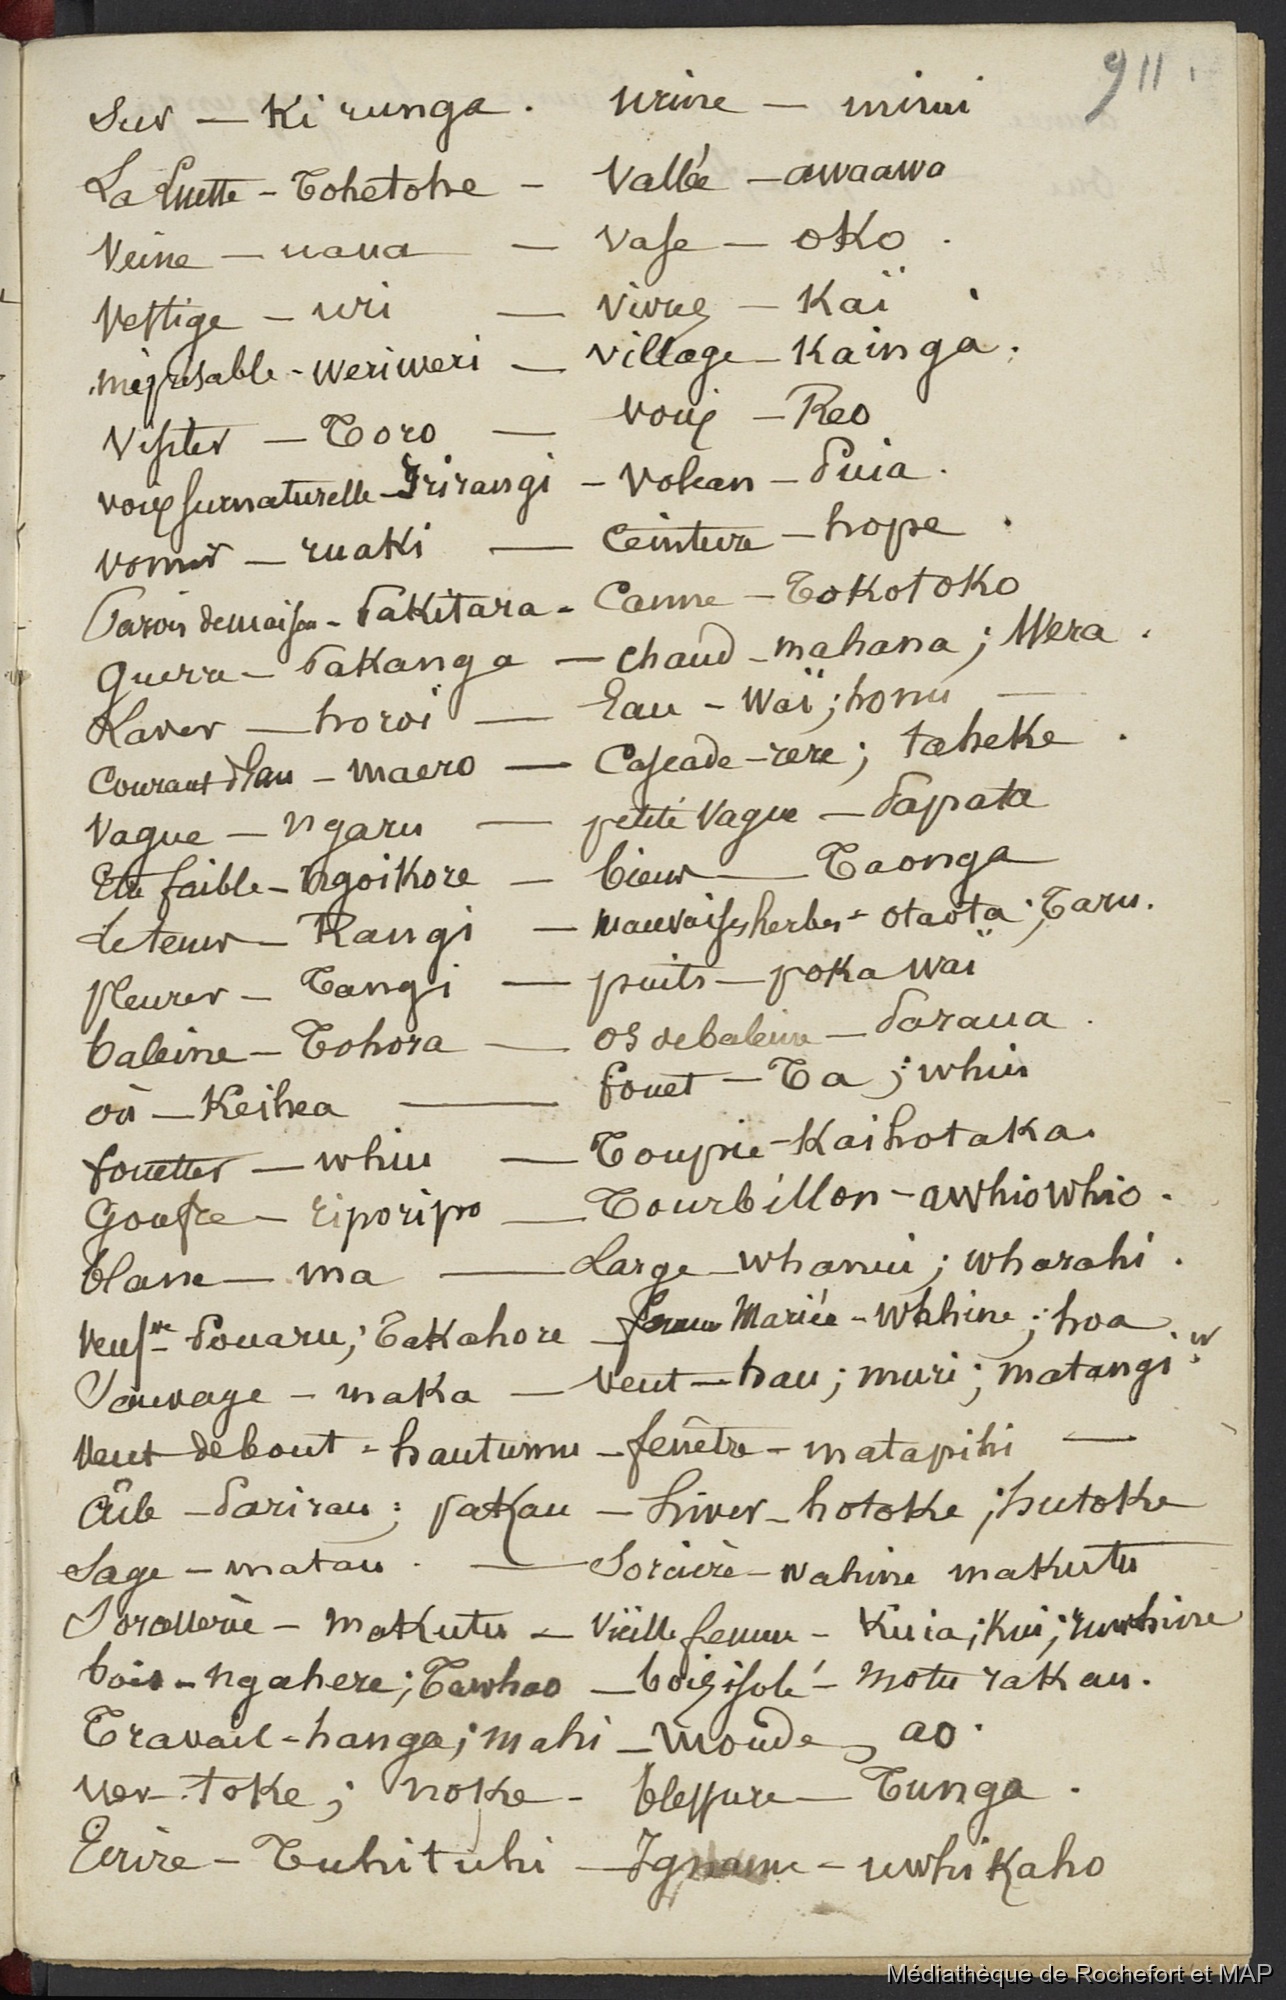 911.
Sur — Ki runga. urine — mimi
La Luette - Tohetohe - Vallée - awaawa
Veine - uaua — Vase — oko.
Vestige - uri — Vivres - Kaï
méprisable - weriweri — Village - Kainga.
Visiter — Toro — voix - Reo
voix surnaturelle - Irirangi - Volcan - Puia.
vomir - ruaki — Ceinture - hope.
Parois de maison - Pakitara - Canne - Tokotoko
Guerre - Pakanga — chaud - mahana; Wera.
Laver - horoi — Eau - Waï; honu —
Courant d'Eau - maero — Cascade - rere; taheke.
Vague - ngaru — petite vague - Papata
Etre faible - Ngoikore — bien — Taonga
Le tenir - Rangi — mauvaises herbes - otaota; Taru.
pleurer - Tangi — puits - poka waï
baleine - Tohora — os de baleine - Paraua.
où - Keihea — fouet - Ta; whiu
fouetter - whiu — Toupie - Kaihotaka.
Goufre - riporipo — Tourbillon - awhiowhio.
blanc - ma — Large - whanui; wharahi.
Veuf ve - Pouaru; Takahore - femme Mariée - Wahine; hoa
Sauvage - maka — Vent - hau; muri; matangi
Vent debout - hautumu - fenêtre - matapihi —
Aîle - Parirau; pakau - hiver - hotoke; hutoke
Sage - matau. — Sorcière - wahine makutu
Sorcellerie - makutu - Vieille femme - Kuia; Kui; ruwhine
bois - Ngahere; Tawhao - bois isolé - motu rakau.
Travail - hanga; mahi - monde - ao.
ver - toke; noke - blessure - Tunga.
Ecrire - Tuhituhi - Igname - uwhikaho
Médiathèque de Rochefort et MAP